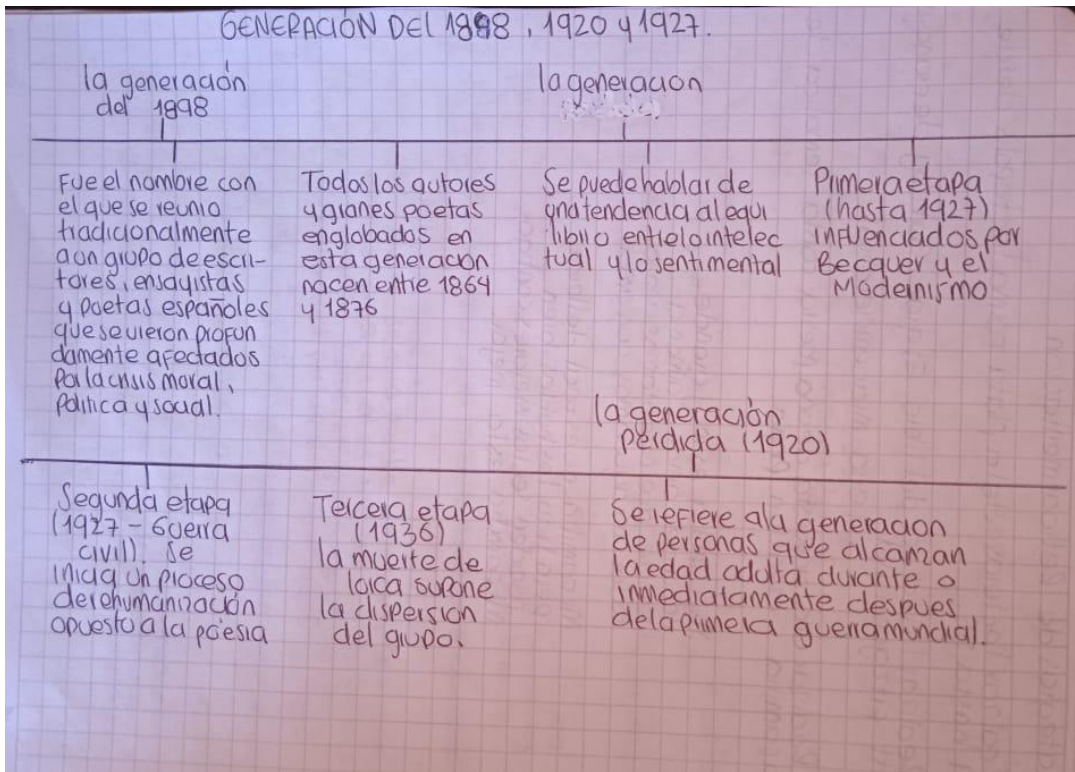 GENERACIÓN DEL 1898, 1920 y 1927.
la generación
del 1898
la generacion
Fue el nombre con
el que se reunio
tradicionalmente
a un grupo de escri-
tores, ensayistas
y poetas españoles
que se vieron profun
damente afectados
por la crisis moral,
politica y social.
Todos los autores
y granes poetas
englobados en
esta generacion
nacen entre 1864
y 1876
Se puede hablar de
una tendencia al equi
librio entre lo intelec
tual y lo sentimental
Primera etapa
(hasta 1927)
influenciados por
Becquer y el
Modernismo
la generación
perdida (1920)
Segunda etapa
(1927 - Guerra
civil). Se
inicia un proceso
derehumanización
opuesto a la poesia
Tercera etapa
(1936)
la muerte de
lorca supone
la dispersion
del grupo.
Se refiere a la generacion
de personas que alcanzan
la edad adulta durante o
inmediatamente despues
de la primera guerra mundial.